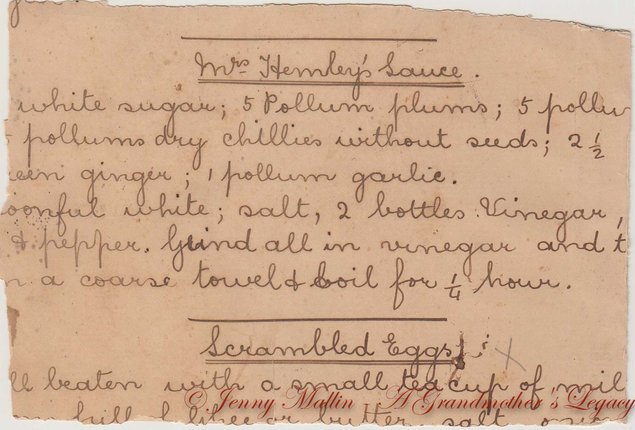 Mrs Hemley's Sauce.
white sugar; 5 Pollum plums; 5 pollu
pollums dry chillies without seeds; 2 1/2
een ginger; 1 pollum garlic.
oonful white; salt, 2 bottles Vinegar,
& pepper. Grind all in vinegar and t
a coarse towel & boil for 1/4 hour.
Scrambled Eggs
ll beaten with a small teacup of mil
butter salt
© Jenny Mallin A Grandmother's Legacy